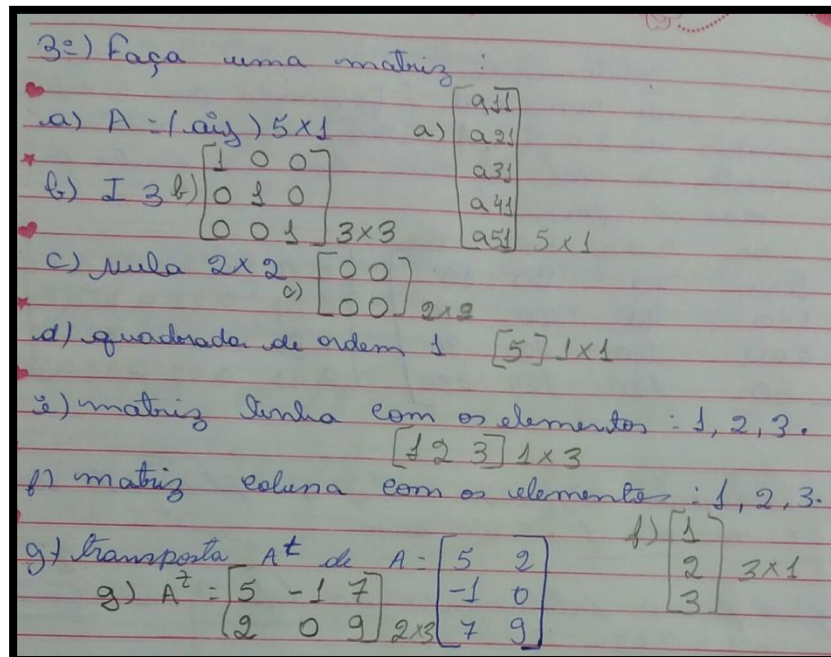 3º) Faça uma matriz :
a) A = (aij) 5x1
a) [a11
a21
a31
a41
a51] 5x1
b) I 3
b) [1 0 0
0 1 0
0 0 1] 3x3
c) nula 2x2
c) [0 0
0 0] 2x2
d) quadrada de ordem 1 [5] 1x1
e) matriz linha com os elementos : 1, 2, 3.
[1 2 3] 1x3
f) matriz coluna com os elementos : 1, 2, 3.
f) [1
2
3] 3x1
g) transposta At de A = [5 2
-1 0
7 9]
g) At = [5 -1 7
2 0 9] 2x3